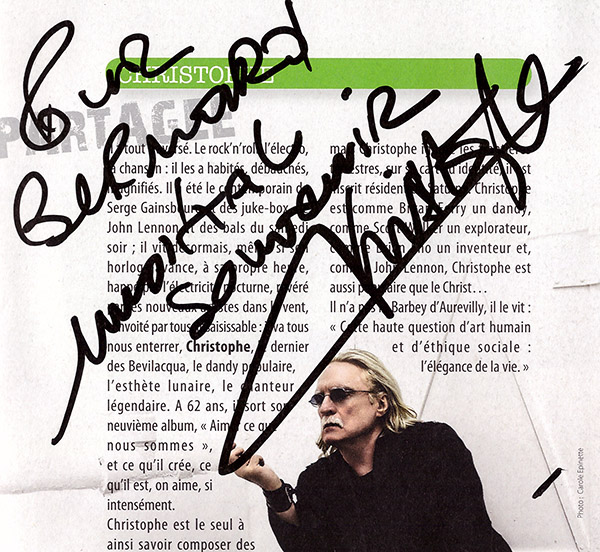 Pour
BERNARD
musikal
souvenir
Christophe
CHRISTOPHE
PARTAGEE
a tout traversé. Le rock'n'roll, l'électro,
la chanson : il les a habités, débauchés,
magnifiés. Il a été le contemporain de
Serge Gainsbourg et des juke-box, de
John Lennon et des bals du samedi
soir ; il vit désormais, même si son
horloge avance, à sa propre heure,
happé de l'électricité nocturne, révéré
par les nouveaux artistes dans le vent,
convoité par tous, insaisissable : il va tous
nous enterrer, Christophe, le dernier
des Bevilacqua, le dandy populaire,
l'esthète lunaire, le chanteur
légendaire. A 62 ans, il sort son
neuvième album, « Aimer ce que
nous sommes »,
et ce qu'il crée, ce
qu'il est, on aime, si
intensément.
Christophe est le seul à
ainsi savoir composer des
mais Christophe les
sur sa carte d'identité, il est
inscrit résident de Saturne. Christophe
est comme Bryan Ferry un dandy,
comme Scott Walker un explorateur,
comme Brian Eno un inventeur et,
comme John Lennon, Christophe est
aussi populaire que le Christ…
Il n'a pas lu Barbey d'Aurevilly, il le vit :
« Cette haute question d'art humain
et d'éthique sociale :
l'élégance de la vie. »
Photo : Carole Epinette